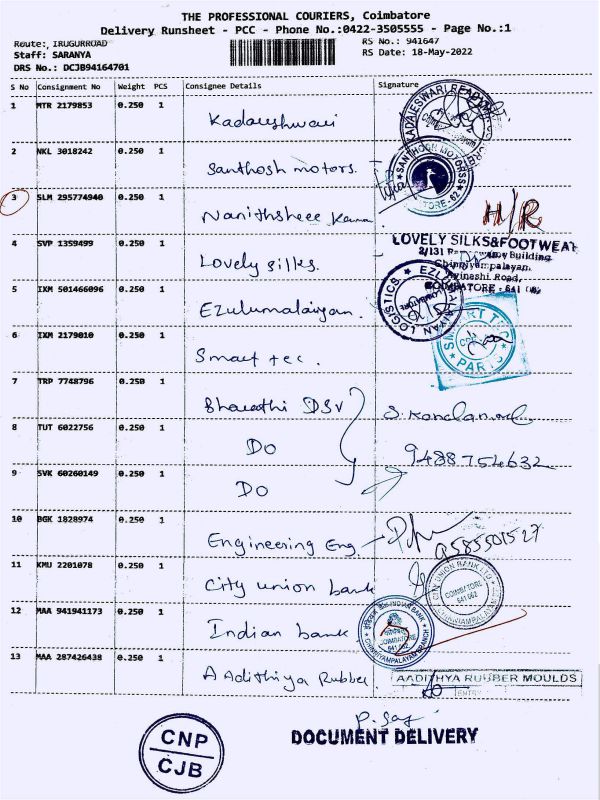 THE PROFESSIONAL COURIERS, Coimbatore
Delivery Runsheet - PCC - Phone No.:0422-3505555 - Page No.:1
Route: IRUGURROAD
RS No.: 941647
Staff: SARANYA
RS Date: 18-May-2022
DRS No.: DCJB94164701
S No Consignment No Weight PCS Consignee Details Signature
1 MTR 2179853 0.250 1
Kadaieshwari
2 NKL 3018242 0.250 1
Santhosh motors.
SANTHOSH MOTORS
3 SLM 295774940 0.250 1
H/R
4 SVP 1359499 0.250 1
Lovely silks.
LOVELY SILKS&FOOTWEAR
2/131
Chinniyampalayam,
Avinashi Road,
COIMBATORE - 641
5 IXM 501466096 0.250 1
Ezulumalaiyan.
LOGISTICS
6 IXM 2179010 0.250 1
Smart tec.
SMART TEC
PARTS
7 TRP 7748796 0.250 1
Bharathi DSV
8 TUT 6022756 0.250 1
Do
9488754632
9 SVK 60260149 0.250 1
Do
10 BGK 1828974 0.250 1
Engineering Eng
9585501527
11 KMU 2201078 0.250 1
City union bank
CITY UNION BANK LTD
COIMBATORE
641 062
CHINNIYAMPALAYAM
12 MAA 941941173 0.250 1
Indian bank
INDIAN BANK
COIMBATORE
641 062
CHINNIYAMPALAYAM BRANCH
13 MAA 287426438 0.250 1
AAdithiya Rubber.
AADITHYA RUUBER MOULDS
ENTRY
DOCUMENT DELIVERY
CNP
CJB